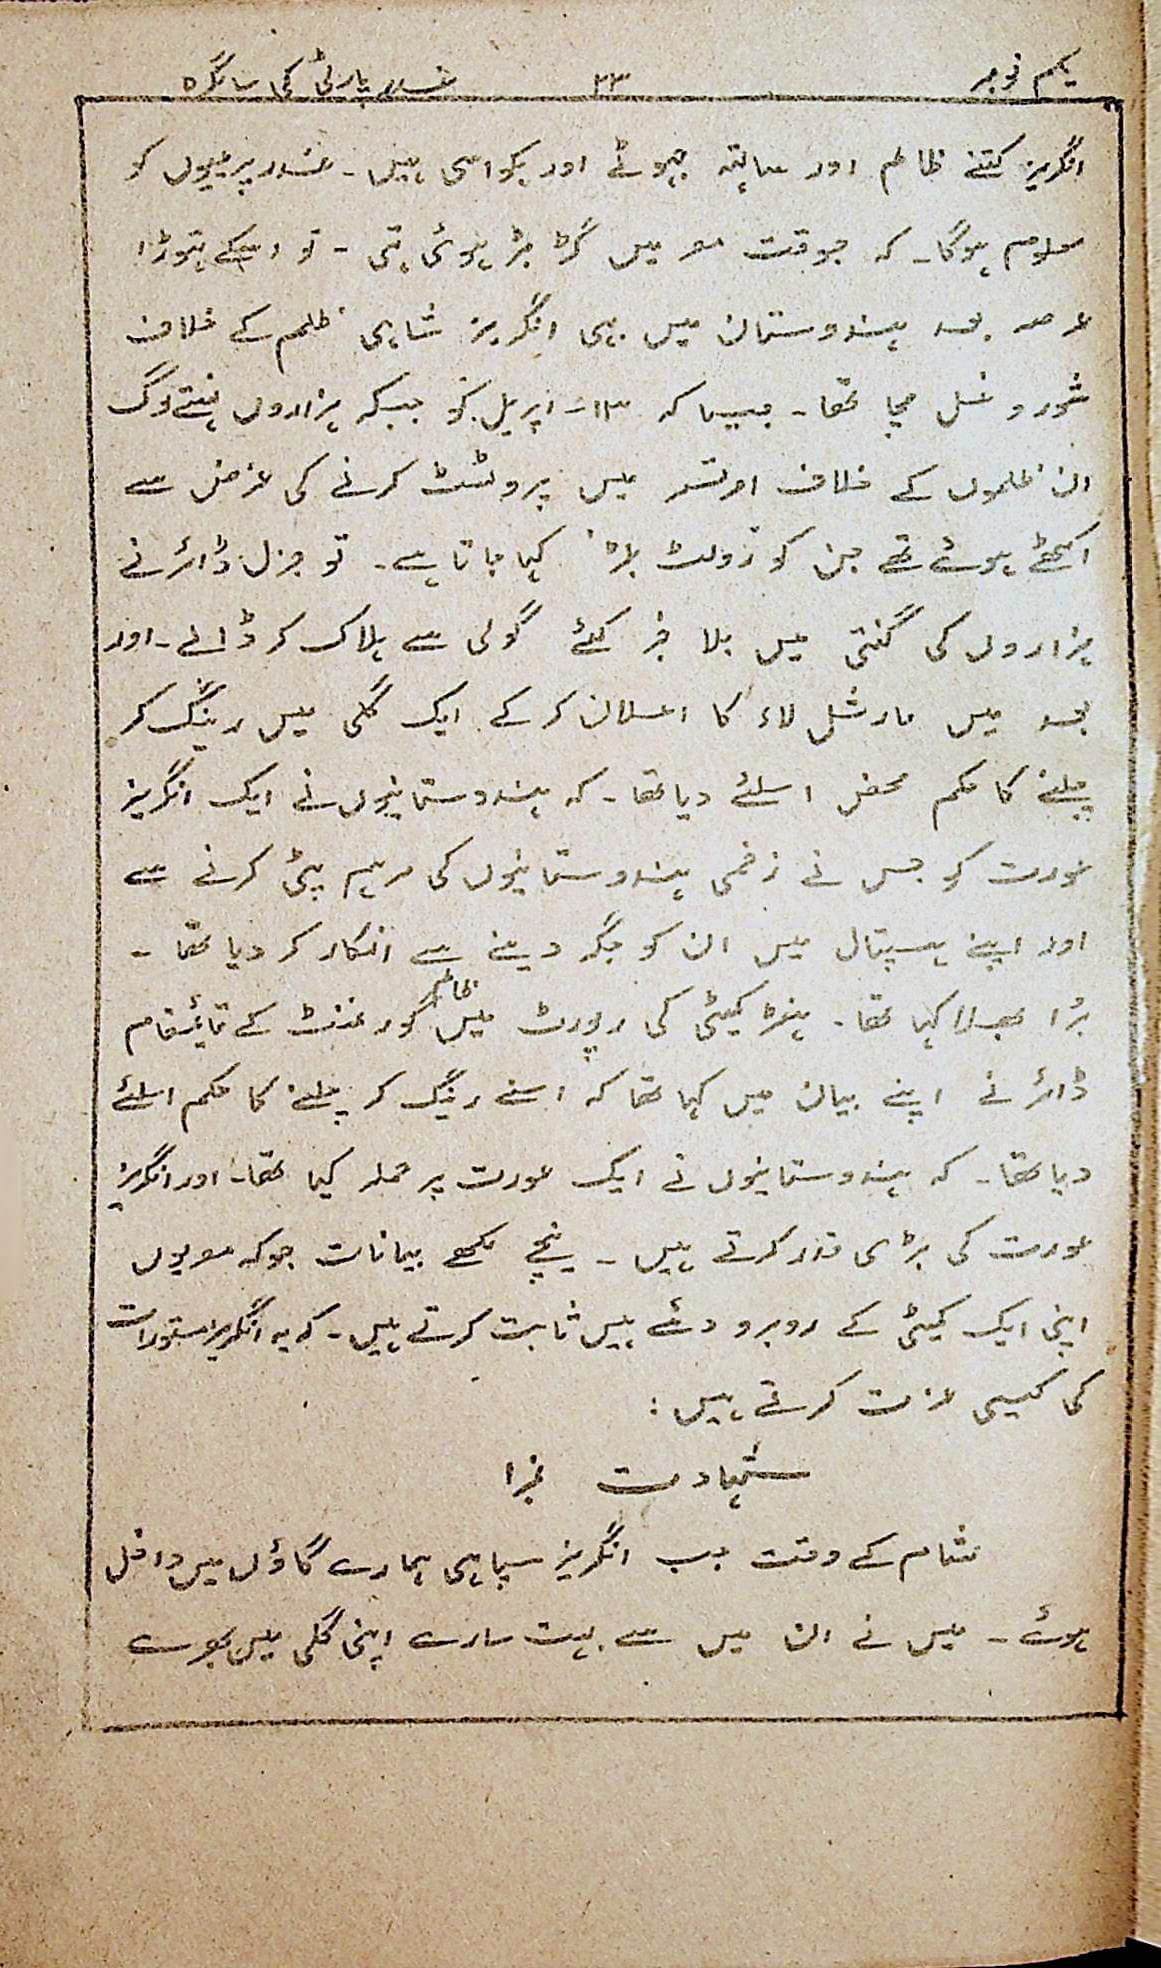 یکم نومبر ۳۳ غدر پارٹی کی سالگرہ
انگریز کتنے ظالم اور ساتھ جہوٹے اور بکواسی ہیں۔ غدر پریمیوں کو
معلوم ہوگا۔ کہ جوقت مصر میں گڑ بڑ ہوئی تہی۔ تو اسکے تہوڑا
عرصہ بعد ہندوستان میں بہی انگریز شاہی ظلم کے خلاف
شور و غل مچا تھا۔ جیسا کہ ۱۳۔ اپریل کو جبکہ ہزاروں نہتے لوگ
ان ظلموں کے خلاف امرتسر میں پروٹسٹ کرنے کی غرض سے
اکھٹے ہوئے تھے جن کو رَولٹ بلڑ کہا جاتا ہے۔ تو جرنل ڈائر نے
ہزاروں کی گنتی میں بلا خبر کئے گولی سے ہلاک کر ڈالے۔ اور
بعد میں مارشل لاء کا اعلان کر کے ایک گلی میں رینگ کر
چلنے کا حکم محض اسلئے دیا تھا۔ کہ ہندوستانیوں نے ایک انگریز
عورت کو جس نے زخمی ہندوستانیوں کی مرہم پٹی کرنے سے
اور اپنے ہسپتال میں ان کو جگہ دینے سے انکار کر دیا تھا۔
بُرا بھلا کہا تھا۔ ہنڑ کمیٹی کی رپورٹ میں ظالم گورنمنٹ کے قائمقام
ڈائر نے اپنے بیان میں کہا تھا کہ اسنے رینگ کر چلنے کا حکم اسلئے
دیا تھا۔ کہ ہندوستانیوں نے ایک عورت پر حملہ کیا تھا۔ اور انگریز
عورت کی بڑی قدر کرتے ہیں۔ نیچے لکھے بیانات جوکہ مصریوں
اپنی ایک کمیٹی کے روبرو دئے ہیں ثابت کرتے ہیں۔ کہ یہ انگریز مستورات
کی کیسی عزت کرتے ہیں:
شہادت نمبر ۱
شام کے وقت جب انگریز سپاہی ہمارے گاؤں میں داخل
ہوئے۔ میں نے ان میں سے بہت سارے اپنی گلی میں پھرے